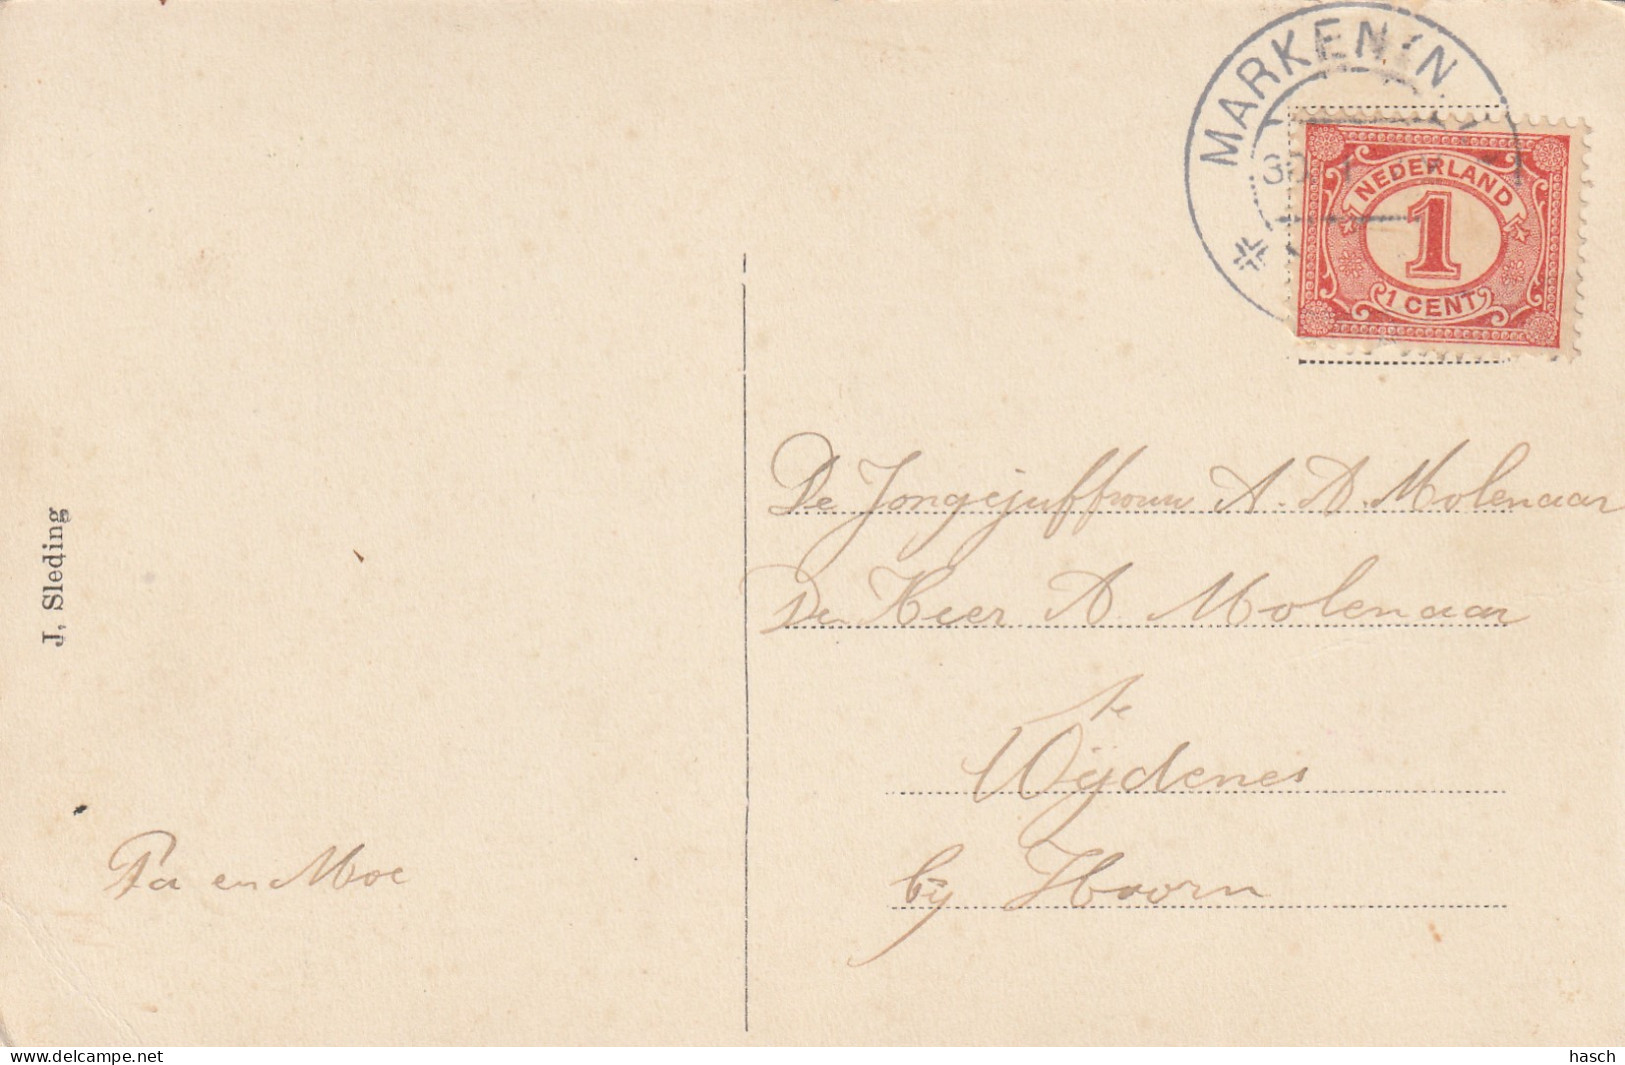 MARKEN
NEDERLAND
1
1 CENT
J. Sleding
De Jongejuffrouw A. A. Molenaar
De Heer A Molenaar
te
Wijdenes
bij Hoorn
Pa en Moe
www.delcampe.net
hasch